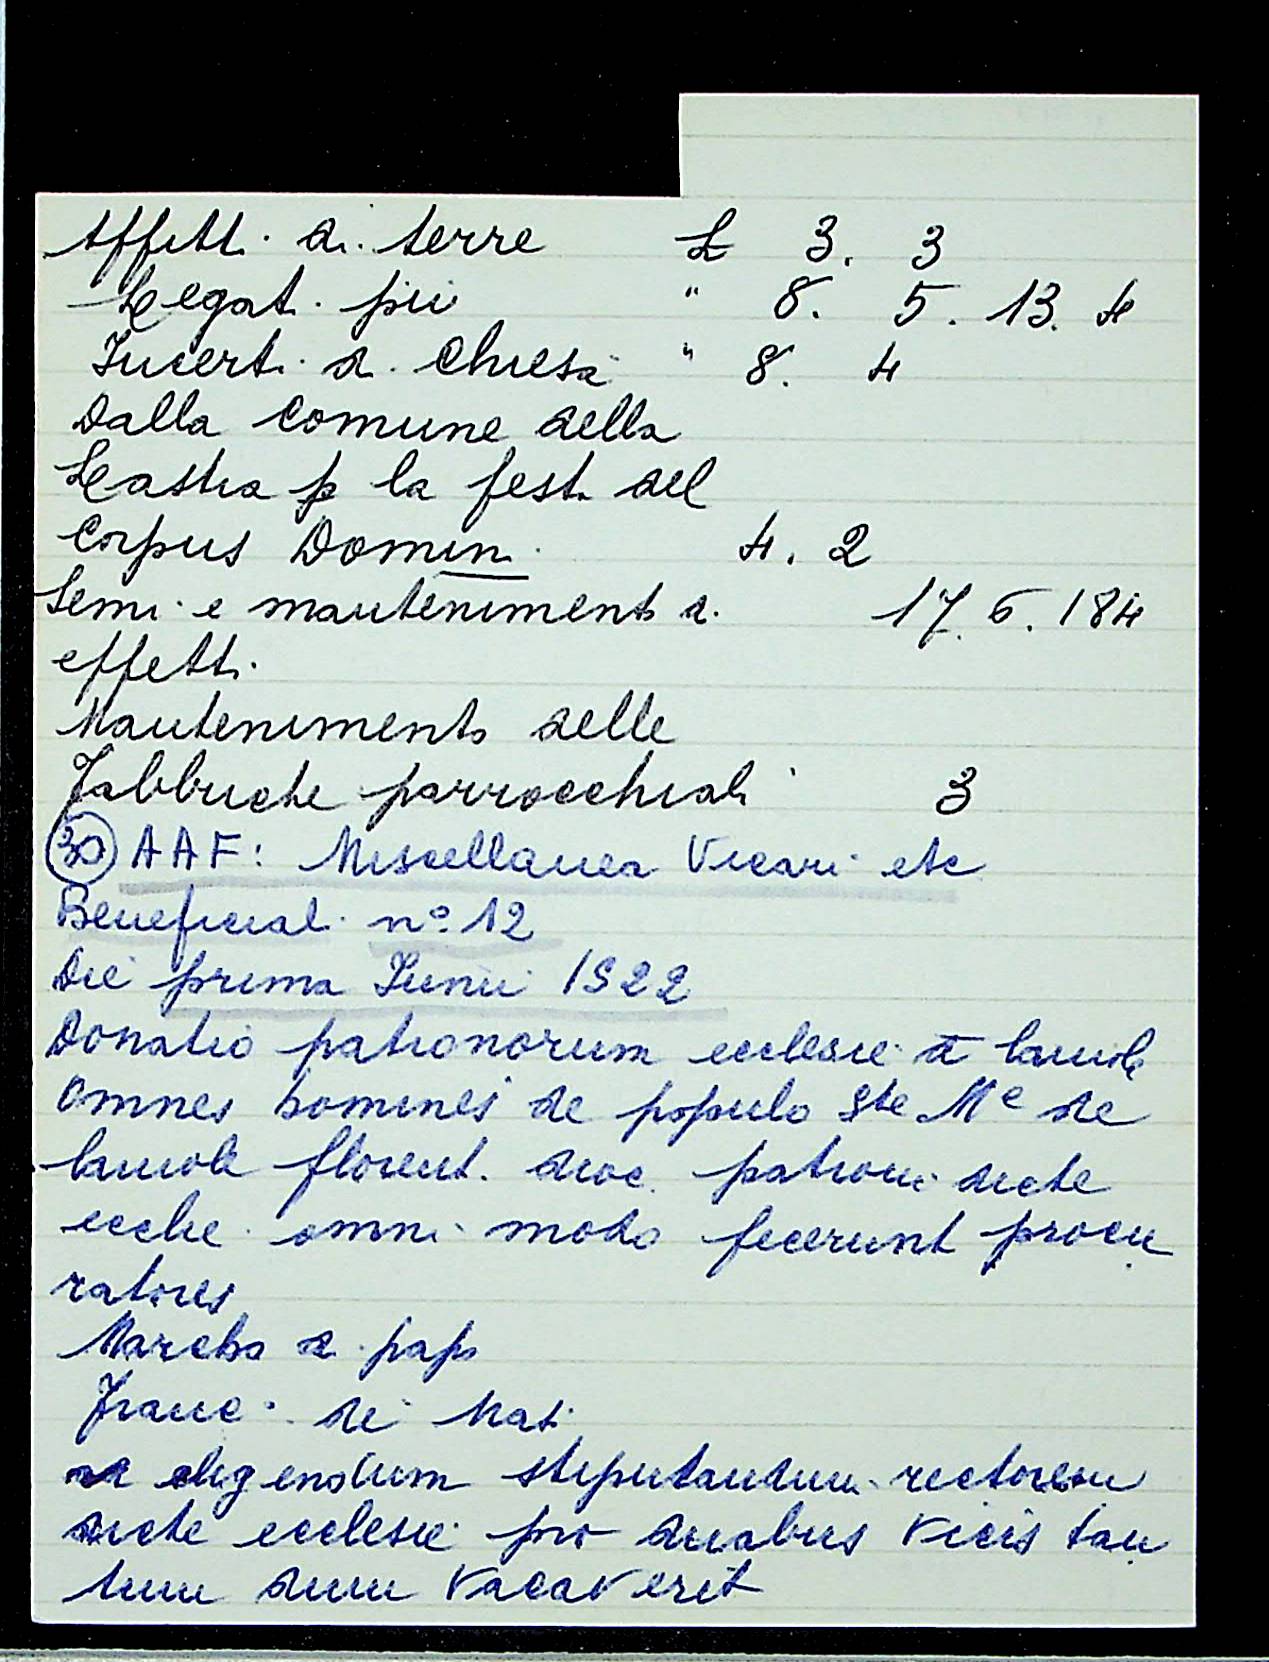 Affitt. di terre £ 3. 3
Legat. pii " 8. 5. 13. 4
Incert. di Chiesa " 8. 4
Dalla comune della
Lastra p la fest. del
Corpus Domin. 4. 2
Semi e mantenimento di 17. 6. 184
effetti.
Mantenimento delle
Fabbriche parrocchiali 3
30 AAF: Miscellanea Vicari etc
Beneficial. n° 12
Die prima Junii 1522
Donatio patronorum ecclesie a lamole
Omnes homines de populo Ste Me de
lamole florent. dioc. patroni dicte
ecche omni modo fecerunt procu
ratores
Marcho di papo
Franc. de
eligendum rectorem
dicte ecclesie pro duabus vicis tan
tum dum vacaveret